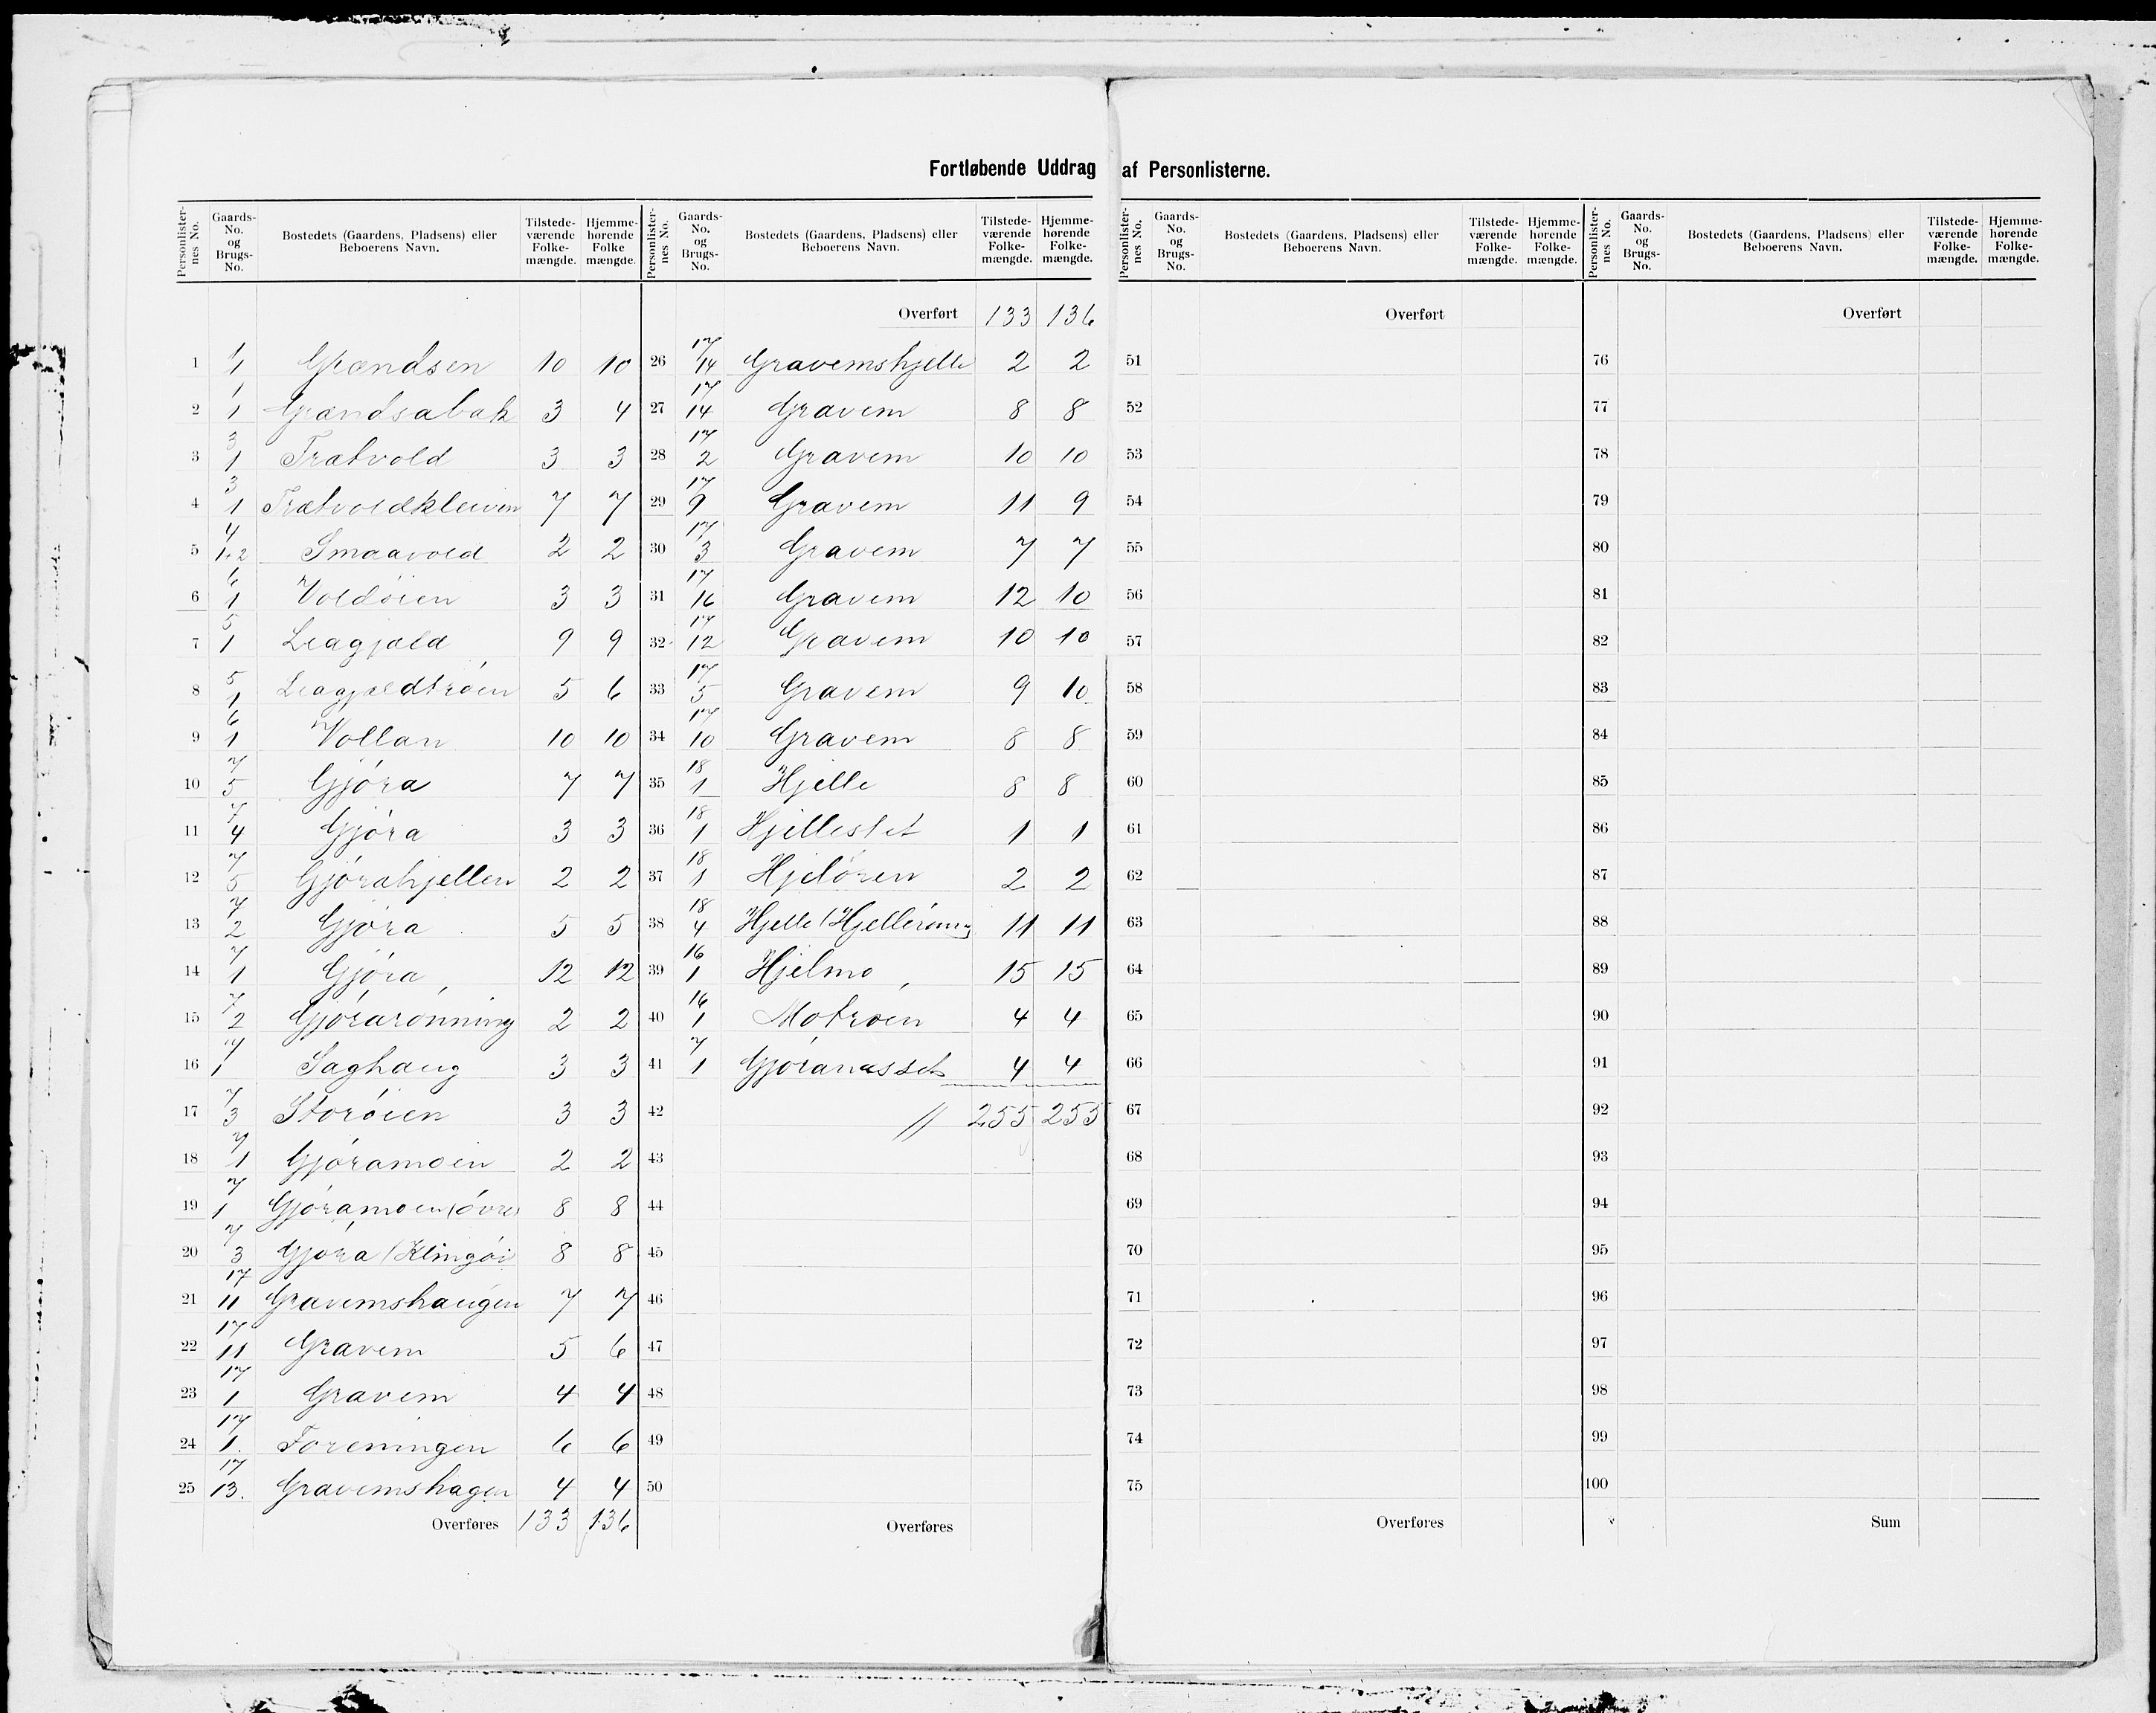 Fortløbende Uddrag af Personlisterne.
Personlister-nes No. | Gaards-No. og Brugs-No. | Bostedets (Gaardens, Pladsens) eller Beboerens Navn. | Tilstede-værende Folke-mængde. | Hjemme-hørende Folke mængde.
1 1/1 Grændsen 10 10
2 1/1 Grændsabak 3 4
3 3/1 Trætvold 3 3
4 3/1 Trætvoldkleiven 7 7
5 4/1.2 Smaavold 2 2
6 6/1 Voldöien 3 3
7 5/1 Leagjæld 9 9
8 5/1 Leagjældtröen 5 6
9 6/1 Vollan 10 10
10 7/5 Gjöra 7 7
11 7/4 Gjöra 3 3
12 7/5 Gjörahjellen 2 2
13 7/2 Gjöra 5 5
14 7/1 Gjöra 12 12
15 7/2 Gjörarönning 2 2
16 7/1 Saghaug 3 3
17 7/3 Storöien 3 3
18 7/1 Gjöramoen 2 2
19 7/1 Gjöramoen (övre) 8 8
20 7/3 Gjöra (Klingöi 8 8
21 17/11 Gravemshaugen 7 7
22 17/11 Gravem 5 6
23 17/1 Gravem 4 4
24 17/1. Foreningen 6 6
25 17/13. Gravemshagen 4 4
Overføres 133 136
Personlister-nes No. | Gaards-No. og Brugs-No. | Bostedets (Gaardens, Pladsens) eller Beboerens Navn. | Tilstede-værende Folke-mængde. | Hjemme-hørende Folke-mængde.
Overført 133 136
26 17/14 Gravemshjelle 2 2
27 17/14 Gravem 8 8
28 17/2 Gravem 10 10
29 17/9 Gravem 11 9
30 17/3 Gravem 7 7
31 17/16 Gravem 12 10
32 17/12 Gravem 10 10
33 17/5 Gravem 9 10
34 17/10 Gravem 8 8
35 18/1 Hjelle 8 8
36 18/1 Hjelleslet 1 1
37 18/1 Hjelören 2 2
38 18/4 Hjelle (Hjellerönning) 11 11
39 16/1 Hjelmo 15 15
40 16/1 Motröen 4 4
41 7/1 Gjöranæsset 4 4
42 // 255 255
43
44
45
46
47
48
49
50
Overføres
Personlister-nes No. | Gaards-No. og Brugs-No. | Bostedets (Gaardens, Pladsens) eller Beboerens Navn. | Tilstede-værende Folke-mængde. | Hjemme-hørende Folke-mængde.
Overført
51
52
53
54
55
56
57
58
59
60
61
62
63
64
65
66
67
68
69
70
71
72
73
74
75
Overføres
Personlister-nes No. | Gaards-No. og Brugs-No. | Bostedets (Gaardens, Pladsens) eller Beboerens Navn. | Tilstede-værende Folke-mængde. | Hjemme-hørende Folke-mængde.
Overført
76
77
78
79
80
81
82
83
84
85
86
87
88
89
90
91
92
93
94
95
96
97
98
99
100
Sum